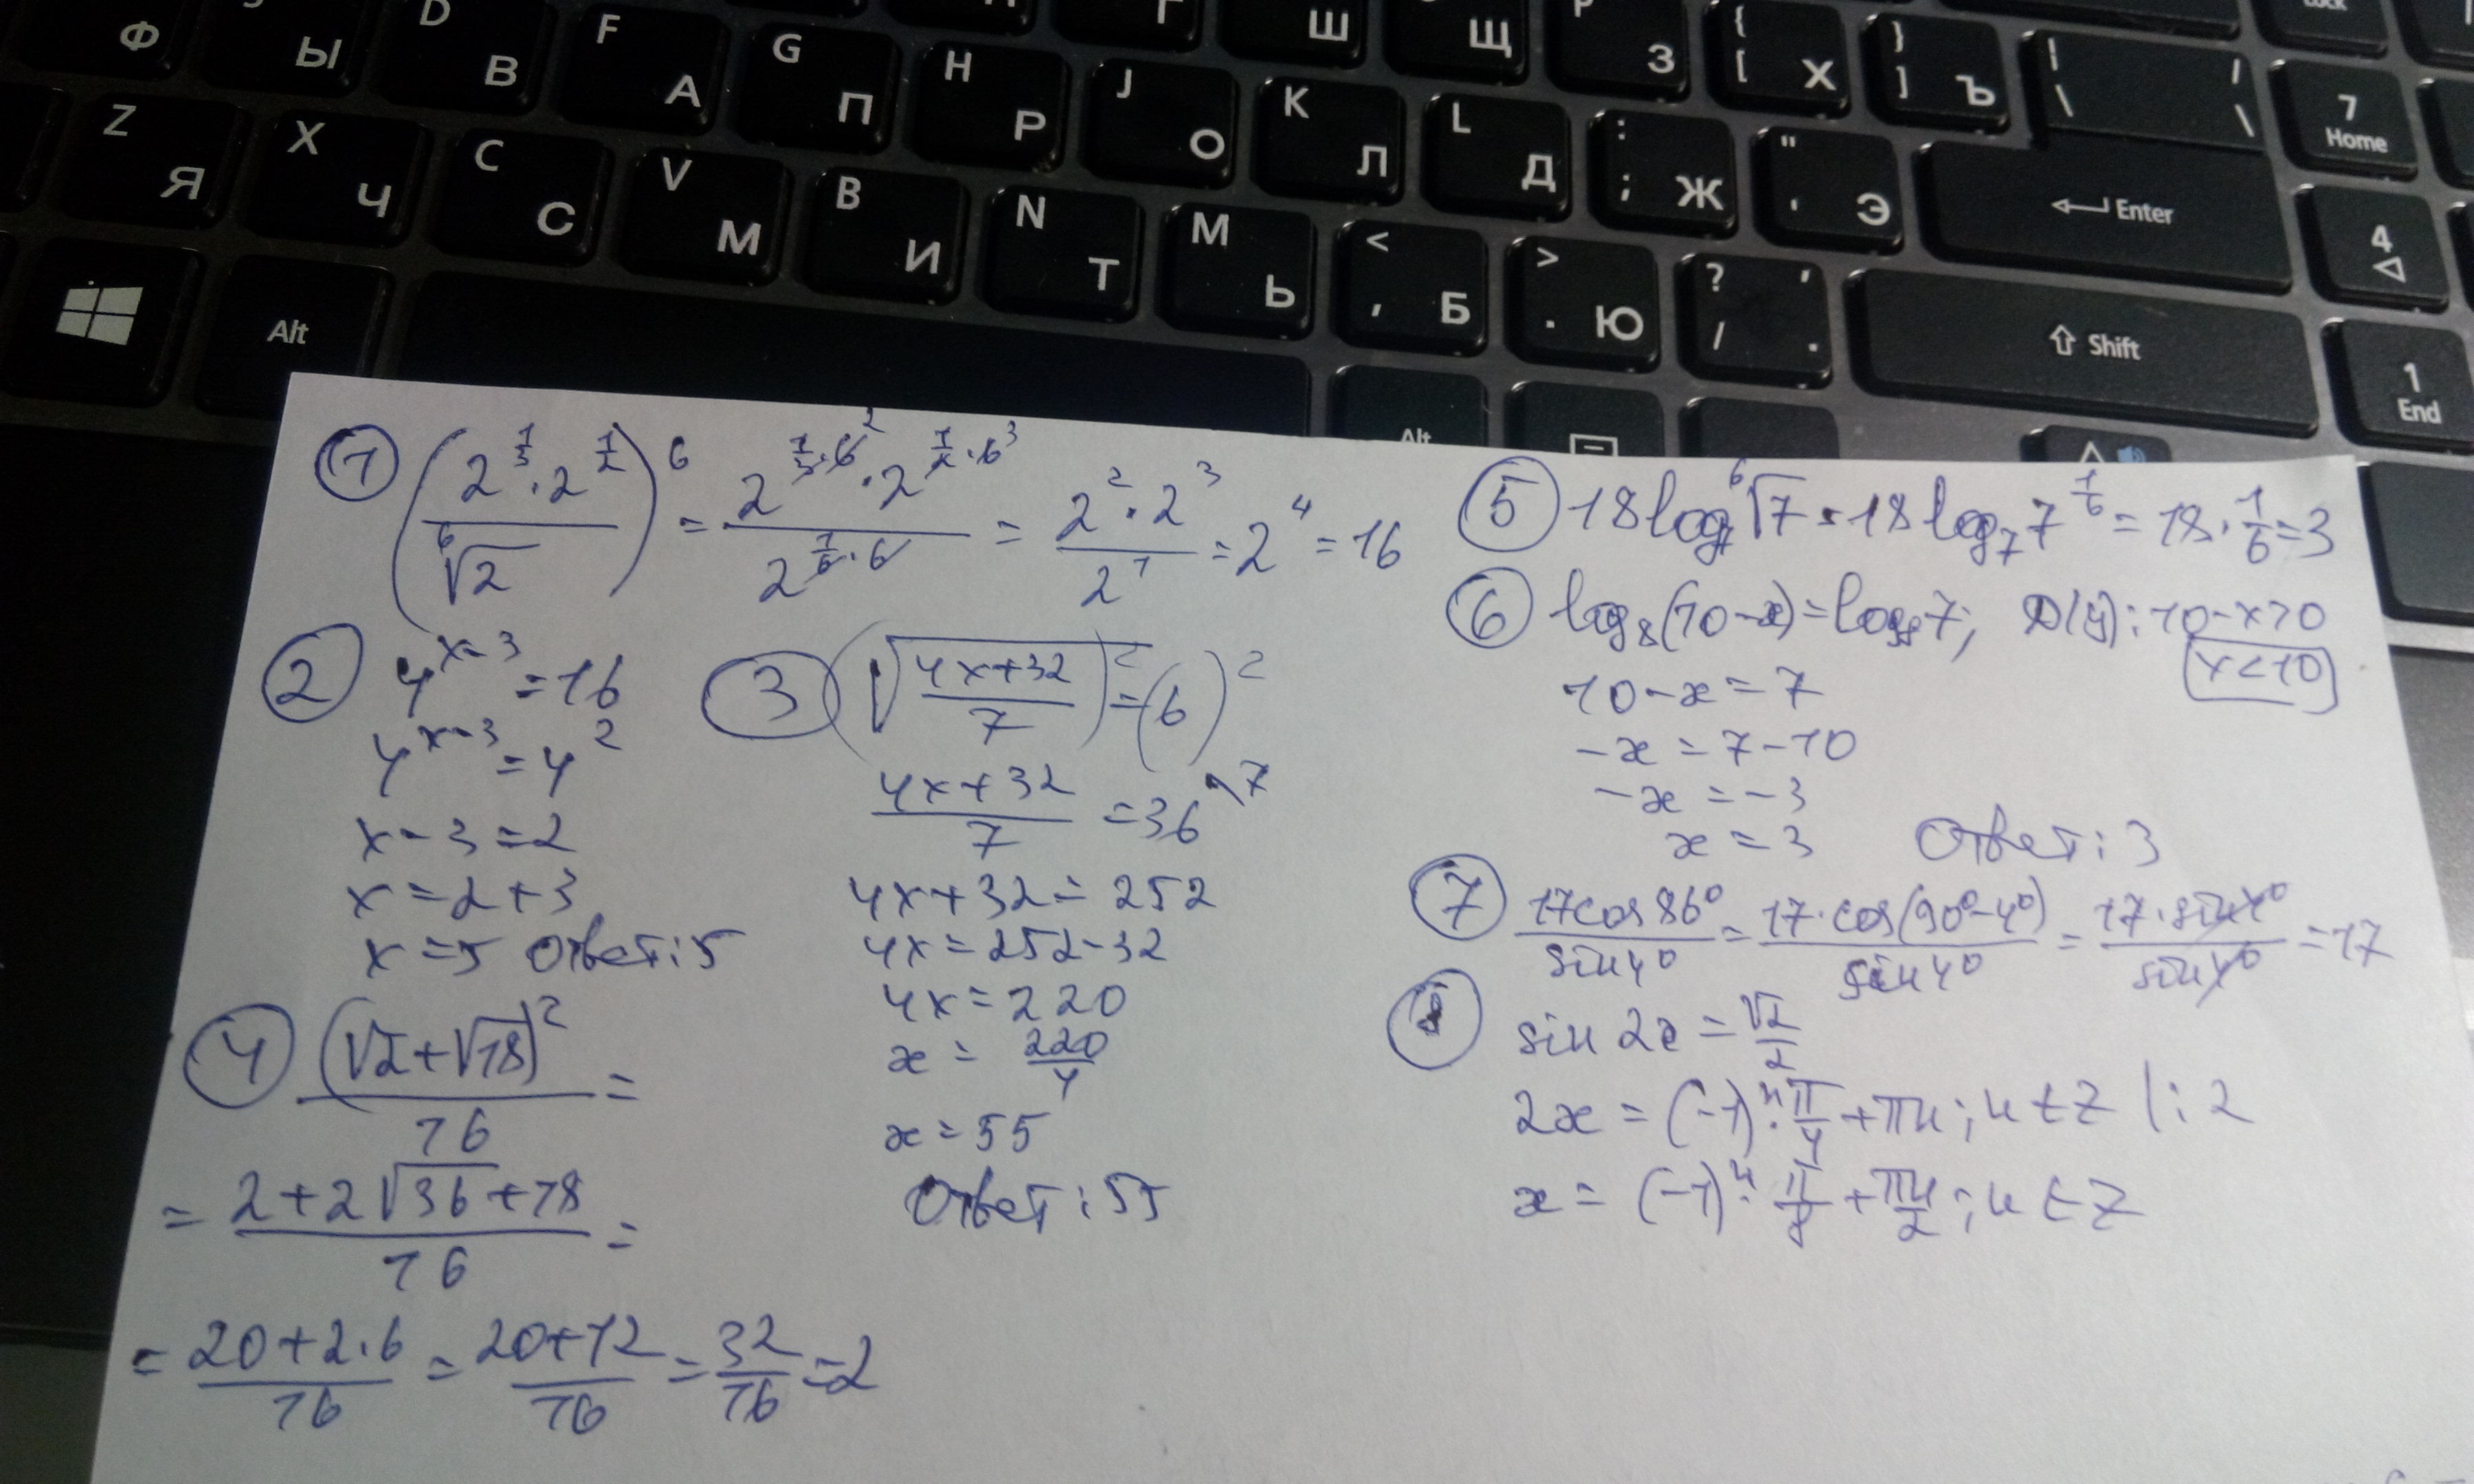 Ф Ы D В F А G П H Р J О K Л L Д : ; Ж " ' Э Enter 4
Ш Щ З { [ Х } ] Ъ | \ / \ 7 Home
Z Я X Ч C С V М B И N Т M Ь < , Б > . Ю ? / , . Shift 1 End
Alt Alt
① (2^{1/3} · 2^{1/2} / ⁶√2)^6 = 2^{1/3·6} · 2^{1/2·6} / 2^{1/6·6} = 2^2 · 2^3 / 2^1 = 2^4 = 16
② 4^{x-3} = 16
4^{x-3} = 4^2
x - 3 = 2
x = 2 + 3
x = 5 Ответ: 5
③ (√((4x+32)/7))^2 = (6)^2
(4x+32)/7 = 36 \7
4x + 32 = 252
4x = 252 - 32
4x = 220
x = 220/4
x = 55
Ответ: 55
④ (√2 + √18)^2 / 16 =
= (2 + 2√36 + 18) / 16 =
= (20 + 2·6) / 16 = (20 + 12) / 16 = 32/16 = 2
⑤ 18 log_7 ⁶√7 = 18 log_7 7^{1/6} = 18 · 1/6 = 3
⑥ log_8 (10 - x) = log_8 7; D(y): 10 - x > 0
x < 10
10 - x = 7
- x = 7 - 10
- x = - 3
x = 3 Ответ: 3
⑦ 17 cos 86° / sin 4° = 17 · cos(90° - 4°) / sin 4° = 17 · sin 4° / sin 4° = 17
⑧ sin 2x = √2/2
2x = (-1)^n · π/4 + πn; n ∈ Z |: 2
x = (-1)^n · π/8 + πn/2; n ∈ Z